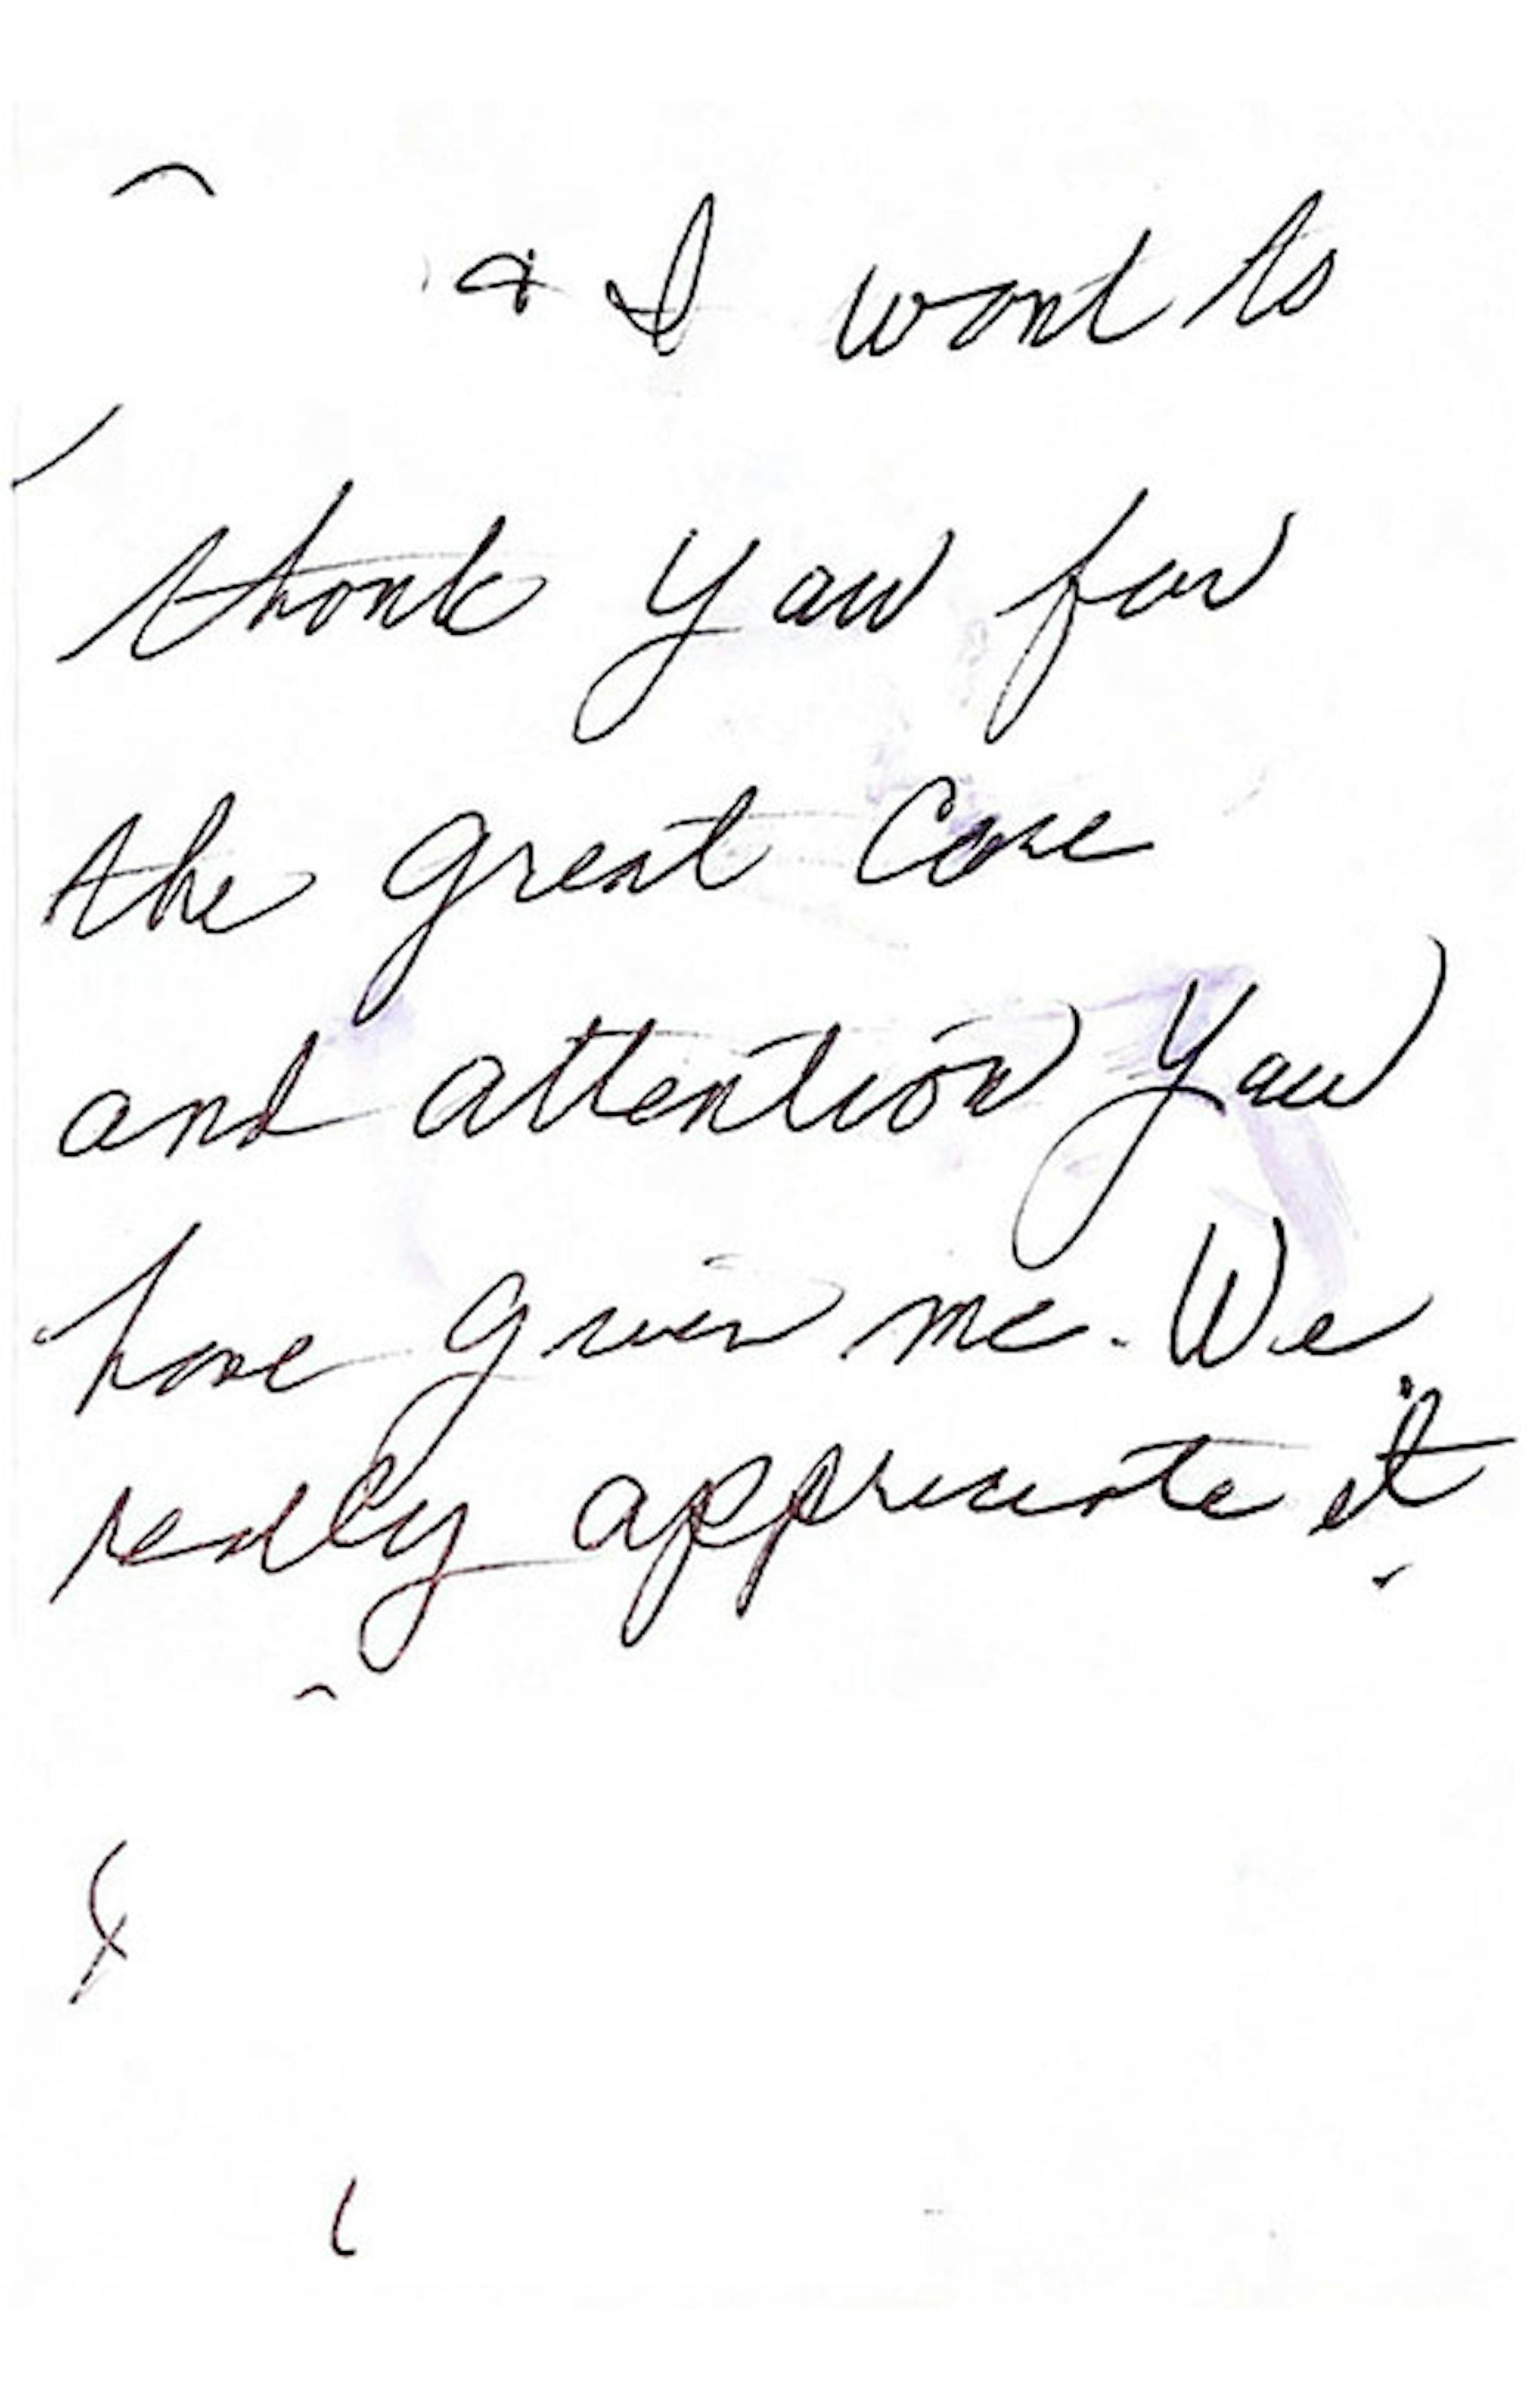 & I want to
thank you for
the great care
and attention you
have given me. We
really appreciate it.